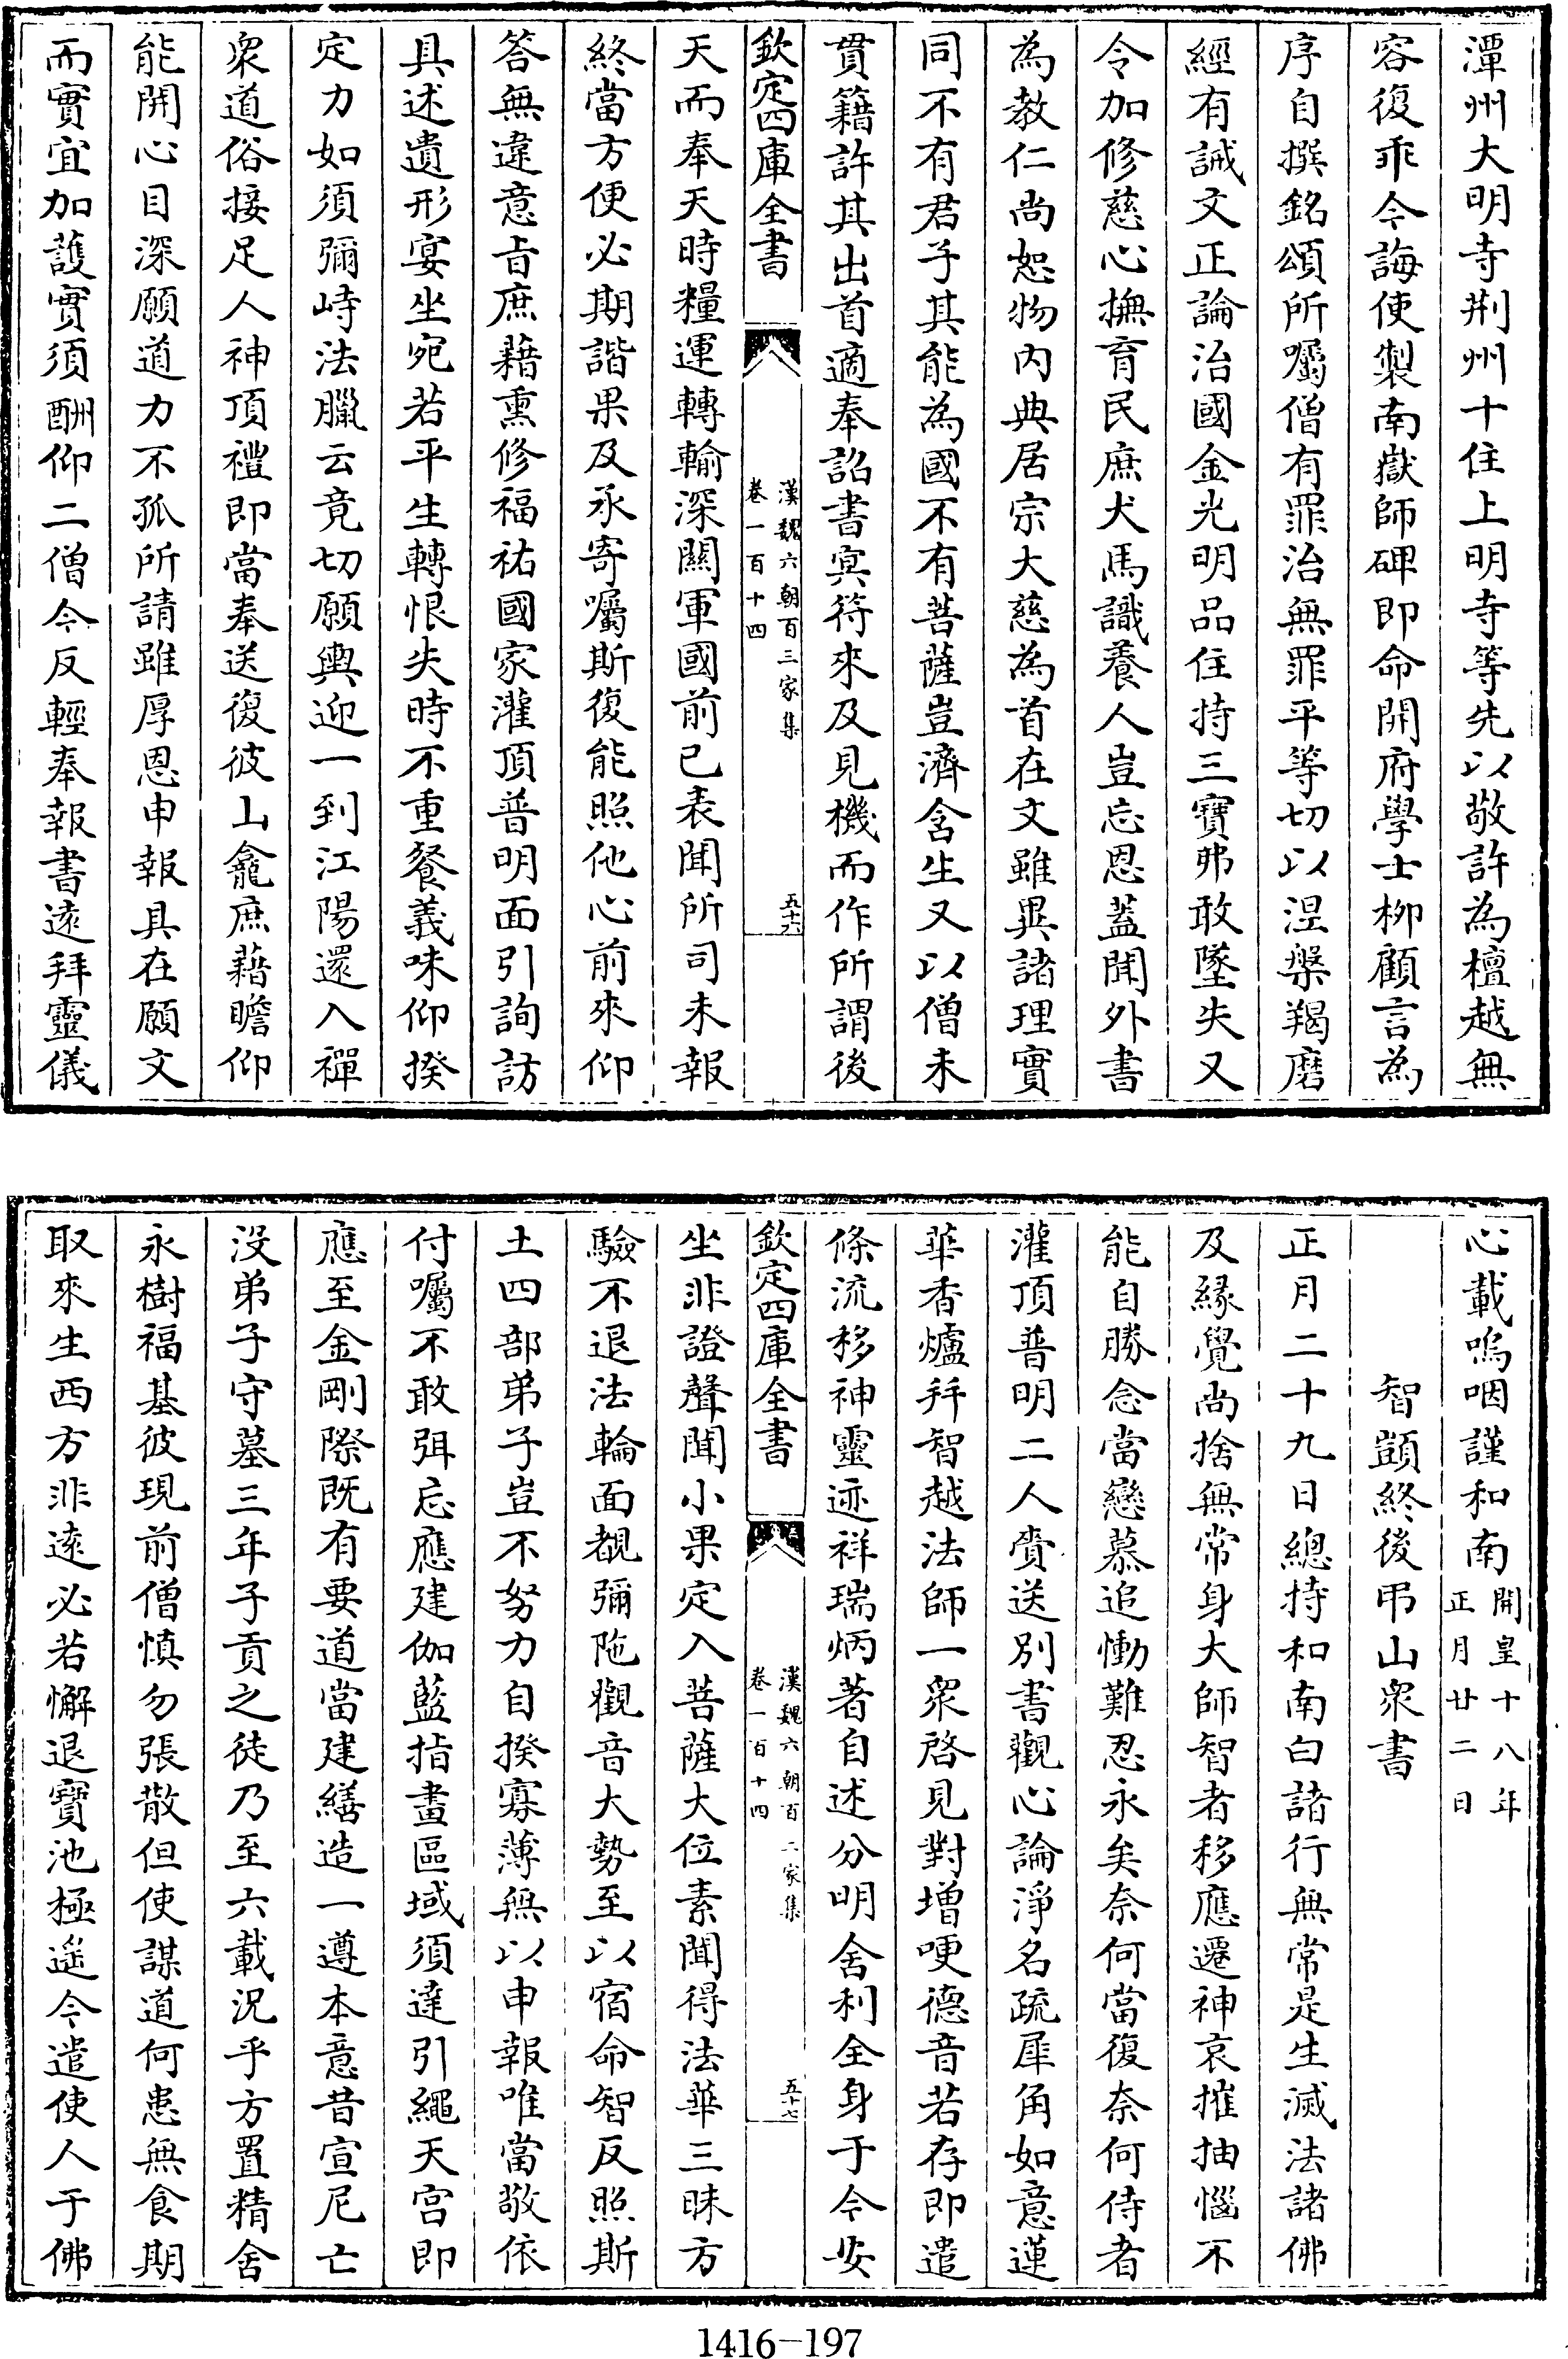 潭州大明寺荆州十住上明寺等先以敬許為檀越無
容復乖今誨使製南嶽師碑即命開府學士柳顧言為
序自撰銘頌所囑僧有罪治無罪平等切以涅槃羯磨
經有誡文正論治國金光明品住持三寶弗敢墜失又
令加修慈心撫育民庶犬馬識養人豈忘恩蓋聞外書
為教仁尚恕物内典居宗大慈為首在文雖異諸理實
同不有君子其能為國不有菩薩豈濟含生又以僧未
貫籍許其出首適奉詔書冥符來及見機而作所謂後
欽定四庫全書
漢魏六朝百三家集
卷一百十四
五十六
天而奉天時糧運轉輸深關軍國前已表聞所司未報
終當方便必期諧果及承寄囑斯復能照他心前來仰
答無違意旨庶藉熏修福祐國家灌頂普明面引詢訪
具述遺形宴坐宛若平生轉恨失時不重餐義味仰揆
定力如須彌峙法臘云竟切願輿迎一到江陽還入禪
衆道俗接足人神頂禮即當奉送復彼山龕庶藉瞻仰
能開心目深願道力不孤所請雖厚恩申報具在願文
而實宜加護實須酬仰二僧今反輕奉報書遠拜靈儀
心載嗚咽謹和南
開皇十八年
正月廿二日
智顗終後弔山衆書
正月二十九日總持和南白諸行無常是生滅法諸佛
及縁覺尚捨無常身大師智者移應遷神哀摧抽惱不
能自勝念當戀慕追慟難忍永矣奈何當復奈何侍者
灌頂普明二人賫送别書觀心論淨名疏犀角如意蓮
華香爐拜智越法師一衆啓見對增哽德音若存即遣
條流移神靈迹祥瑞炳著自述分明舍利全身于今安
欽定四庫全書
漢魏六朝百三家集
卷一百十四
五十七
坐非證聲聞小果定入菩薩大位素聞得法華三昧方
驗不退法輪面覩彌陁觀音大勢至以宿命智反照斯
土四部弟子豈不努力自揆寡薄無以申報唯當敬依
付囑不敢弭忘應建伽藍指畫區域須達引繩天宫即
應至金剛際既有要道當建繕造一遵本意昔宣尼亡
没弟子守墓三年子貢之徒乃至六載況乎方置精舍
永樹福基彼現前僧慎勿張散但使謀道何患無食期
取來生西方非遠必若懈退寶池極遥今遣使人于佛
1416-197